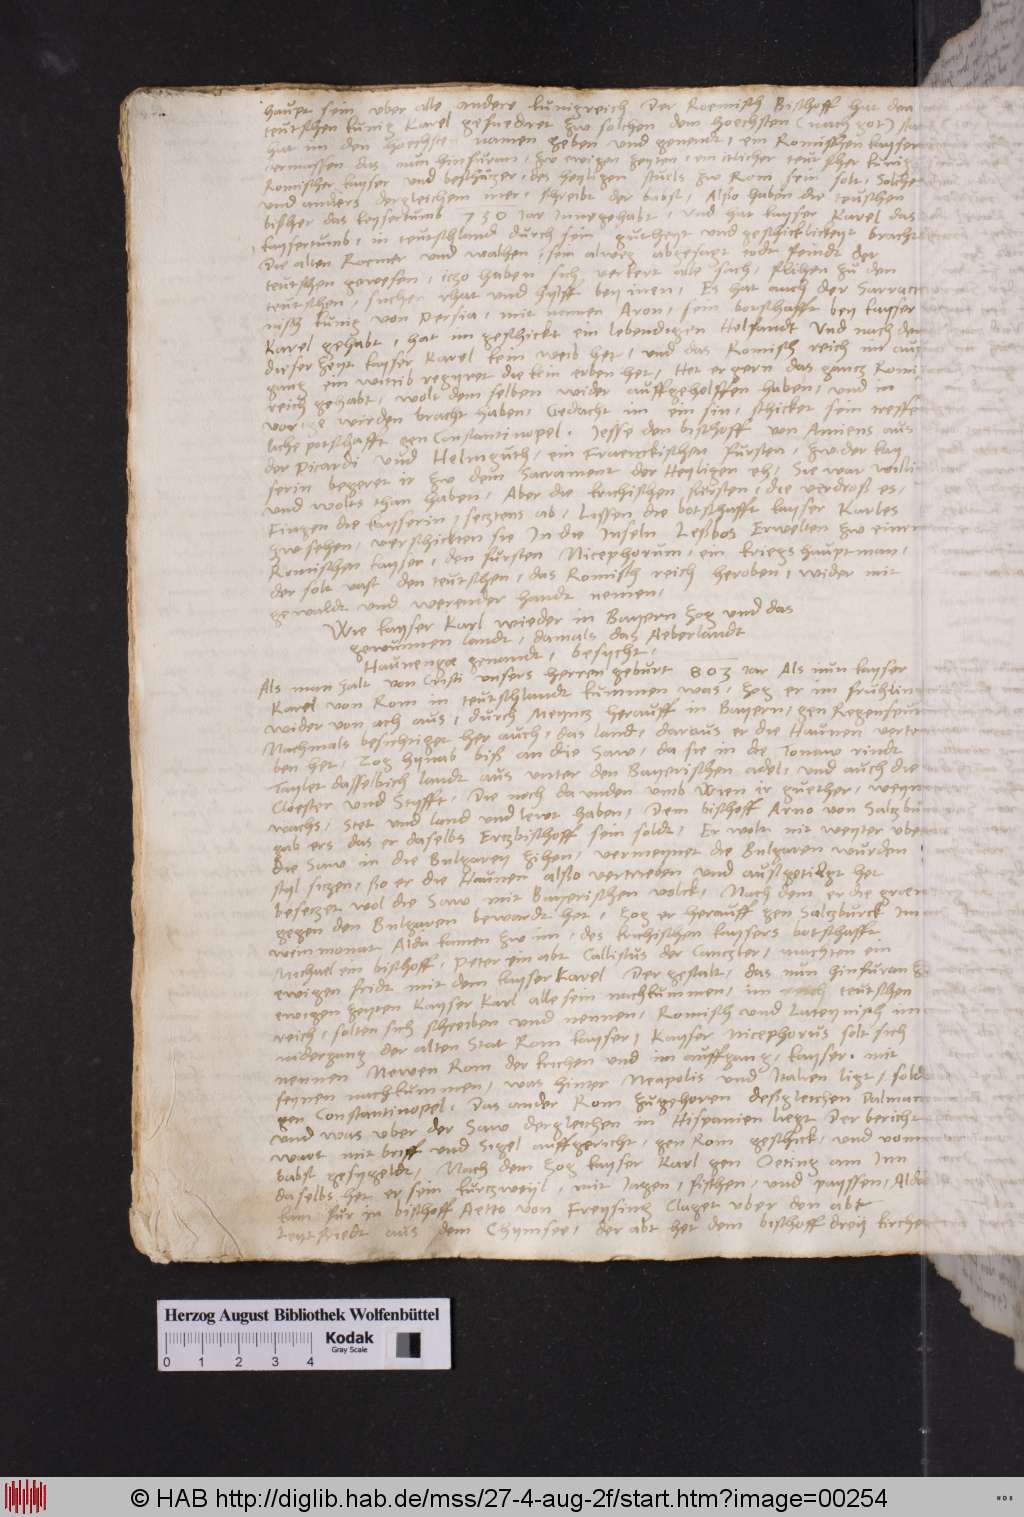 haupt sein uber alle andere kunigreich Der Roemisch Bischoff hat den
teutschen kunig Karel gefuedert zw solchen dem hoechsten (nach got) stat
hat im den hoechsten namen geben und genendt, ein Romischen kayser
dermassen das nun hinfuran, zw ewigen zeyten, ein itlicher teutscher kunig
Romischer kayser und beschuczer, des heyligen stuels zw Rom sein solt, Solches
und anders dergleichen mer, schreibt der babst, Also haben die teutschen
bisher das kaysertumb 750 Jar Innegehabt, und hat kayser Karel das
kaysertumb, in teutschland durch sein gutheyt und geschicklickeyt bracht
Die alten Roemer und walhen, sein alweg abgesagt todt feindt der
teutschen gewesen, iczo haben sich verkert alle sach, fliehen zu den
teutschen, suchen rhat und hylff bey inen, Es hat auch der Sarrace
nisch kunig von Persia, mit namen Aron, sein botschafft bey kayser
Karel gehabt, hat im geschickt ein lebendigen Helfandt Und nach dem
dieser zeyt kayser Karel kein weib het, und das Romisch reich im auf
gang ein witib regyret die kein erben het, Het er gern das gancz Romi
reich gehabt, wolt dem selben wider auffgeholffen haben, und in
vorige wirden bracht haben, Gedacht im ein sin, schicket sein treffe
liche potschafft gen Constantinopel. Jesse den bischoff von Amiens aus
der Picardi und Helmguth, ein Franckischen fursten, zw der kay
serin begeret ir zw dem Sacrament der Heyligen eh, Sie war willi
und wolts than haben, Aber die krichischen fursten, die verdroß es,
Fingen die kayserin, seczten ab, Liessen die botschafft kayser Karles
zw sehen, verschickten sie In die Inseln Leßbos Erwelten zw einem
Romischen kayser, den fursten Nicephorum, ein kriegs hauptman,
der solt vast den teutschen, das Romisch reich heroben, wider mit
gewaldt und werender handt nemen,
Wie kayser Karl wieder in Bayern zog und das
gewunnen landt, damals das Aeberlandt
Haunengoe genandt, besycht,
Als man zalt von Cristi unsers herren geburt 803 Jar Als nun kayser
Karel von Rom in teutschlandt kummen was, zog er im fruhlin
wider von ach aus, durch Meyncz herauff in Bayern, gen Regenspur
Nachmals besichtiget her auch, das land, daraus er die Haunen vertri
ben het, Zog hynab biß an die Saw, da sie in die Tonaw rindt
Taylet dasselbich landt aus unter den Bayerischen adel, und auch die
Cloester und Styfft, Die noch da unden umb Wien ir guether, weyn
wachs, Stet und land und lewt haben, Dem bischoff Arno von Salczbur
gab ers das er daselbs Erczbischoff sein soldt, Er wolt nit weyter uber
die Saw in die Bulgarey zihen, vermeynet die Bulgaren wurden
styl siczen, so er die Haunen alßo vertrieben und ausgetilgt het
beseczet wol die Saw mit Bayerischen volck, Nach dem er die graen
gegen den Bulgaren bewardt het, zog er herauff gen Salczburck Im
weinmonat Alda kamen zw im, des krichischen kaysers botschafft
Michael ein bischoff, Peter ein abt Callistus der Canczler, machten ein
ewigen fridt mit dem kayser Karel Dergestalt, das nun hinfuran zu
ewigen zeyten Kayser Karl alle sein nachkummen, im teutschen
reich, solten sich schreiben und nennen, Romisch und Lateynisch im
nidergang der alten Stat Rom kayser, Kayser Nicephorus solt sich
nennen Newen Rom der krichen und im auffgang, kayser. mit
seynen nachkummen, was hinter Neapolis und Italien ligt, sold
gen Constantinopel. Das ander Rom zugehoren deßgleichen Dalmaci
und was uber der Saw dergleichen in Hispanien liegt Der bericht
wart mit briff und Sigel auffgericht, gen Rom geschickt, und vom
babst gesygeldt, Nach dem zog kayser Karl gen Oeting am Inn
daselbs het er sein kurczweyl, mit Jagen, fischen, und payssen, Alda
kam fur in bischoff Aetto von Freysing Claget uber den abt
leutfriedt aus dem Chymsee, der abt het dem bischoff drey kirche
Herzog August Bibliothek Wolfenbüttel
0 1 2 3 4
Kodak
Gray Scale
© HAB http://diglib.hab.de/mss/27-4-aug-2f/start.htm?image=00254